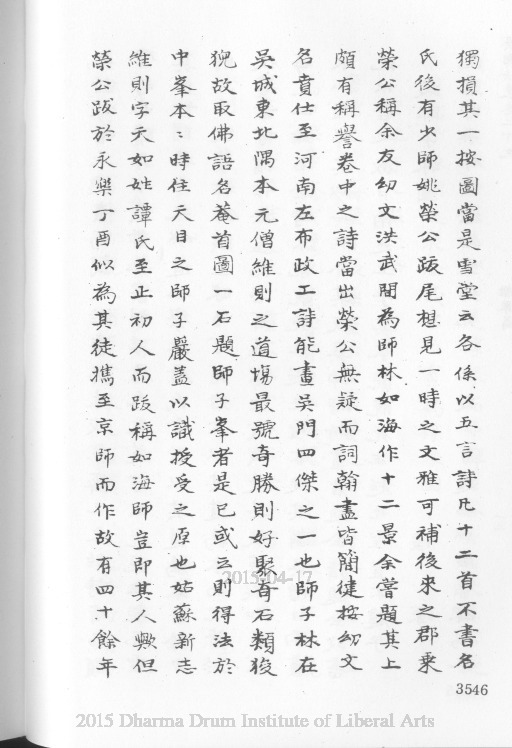 獨損其一按圖當是雪堂云各係以五言詩凡十二首不書名
氏後有少師姚榮公跋尾想見一時之文雅可補後來之郡乗
榮公稱余友幼文洪武間為師林如海作十二景余嘗題其上
頗有稱譽卷中之詩當出榮公無疑而詞翰畫皆簡徤按幼文
名賁仕至河南左布政工詩能畫吳門四傑之一也師子林在
吳城東北隅本元僧維則之道塲最號奇勝則好聚奇石類狻
猊故取佛語名菴首圖一石題師子峯者是已或云則得法於
中峯本〻時住天目之師子巖蓋以識授受之原也姑蘇新志
維則字天如姓譚氏至正初人而跋稱如海師豈即其人歟但
榮公跋於永樂丁酉似為其徒擕至京師而作故有四十餘年
3546
2015-04-17
2015 Dharma Drum Institute of Liberal Arts